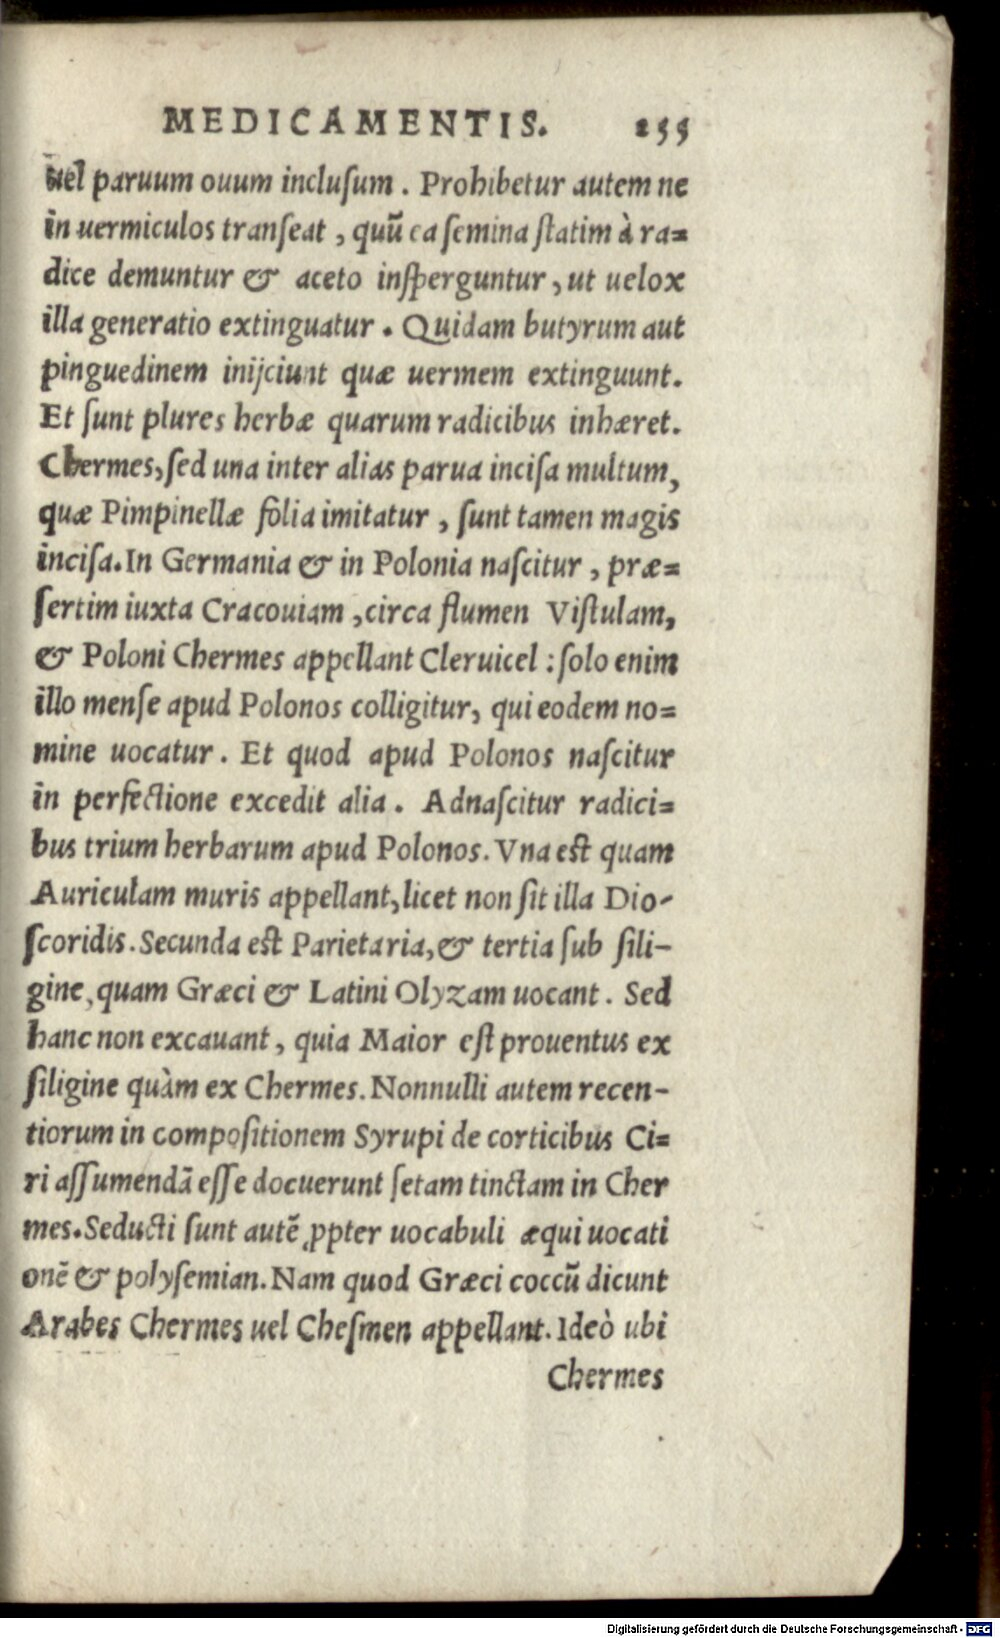 MEDICAMENTIS. 255
uel paruum ouum inclusum. Prohibetur autem ne
in uermiculos transeat, quũ ea semina statim à ra=
dice demuntur & aceto insperguntur, ut uelox
illa generatio extinguatur. Quidam butyrum aut
pinguedinem inijciunt quæ uermem extinguunt.
Et sunt plures herbæ quarum radicibus inhæret.
Chermes, sed una inter alias parua incisa multum,
quæ Pimpinellæ folia imitatur, sunt tamen magis
incisa. In Germania & in Polonia nascitur, præ=
sertim iuxta Cracouiam, circa flumen Vistulam,
& Poloni Chermes appellant Cleruicel: solo enim
illo mense apud Polonos colligitur, qui eodem no=
mine uocatur. Et quod apud Polonos nascitur
in perfectione excedit alia. Adnascitur radici=
bus trium herbarum apud Polonos. Vna est quam
Auriculam muris appellant, licet non sit illa Dio-
scoridis. Secunda est Parietaria, & tertia sub sili-
gine, quam Græci & Latini Olyzam uocant. Sed
hanc non excauant, quia Maior est prouentus ex
siligine quàm ex Chermes. Nonnulli autem recen-
tiorum in compositionem Syrupi de corticibus Ci=
ri assumendã esse docuerunt setam tinctam in Cher
mes. Seducti sunt autẽ ꝓpter uocabuli æqui uocati
onẽ & polysemian. Nam quod Græci coccũ dicunt
Arabes Chermes uel Chesmen appellant. Ideò ubi
Chermes
Digitalisierung gefördert durch die Deutsche Forschungsgemeinschaft - DFG